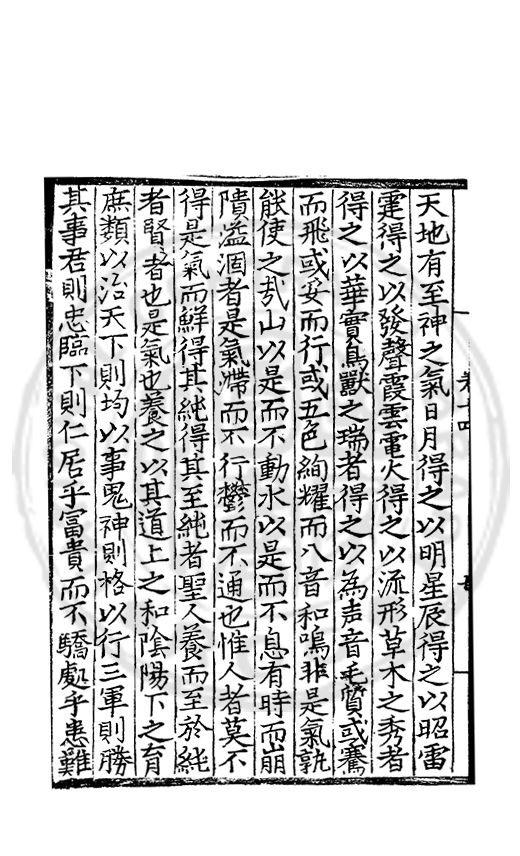 天地有至神之氣日月得之以明星辰得之以昭雷
霆得之以發聲霞雲電火得之以流形草木之秀者
得之以華實鳥獸之瑞者得之以為声音毛質或騫
而飛或妥而行或五色絢耀而八音和鳴非是氣孰
能使之㢤山以是而不動水以是而不息有時而崩
隤溢涸者是氣滯而不行欝而不通也惟人者莫不
得是氣而鮮得其純得其至純者聖人養而至於純
者賢者也是氣也養之以其道上之和陰陽下之育
庶類以治天下則均以事鬼神則格以行三軍則勝
其事君則忠臨下則仁居乎富貴而不驕處乎患難
卷十四